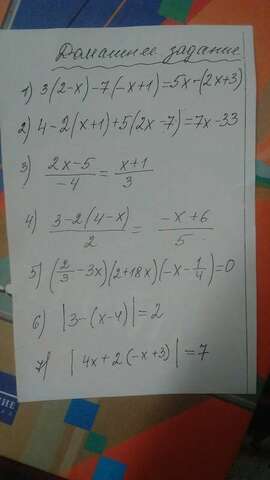 Домашнее задание
1) 3(2-x)-7(-x+1)=5x-(2x+3)
2) 4-2(x+1)+5(2x-7)=7x-33
3) (2x-5)/(-4) = (x+1)/3
4) (3-2(4-x))/2 = (-x+6)/5
5) (2/3-3x)(2+18x)(-x-1/4)=0
6) |3-(x-4)|=2
7) |4x+2(-x+3)|=7